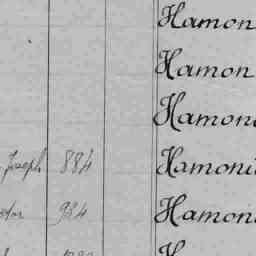 Hamon
Hamon
Hamon
Joseph 884 Hamoni
984 Hamoni